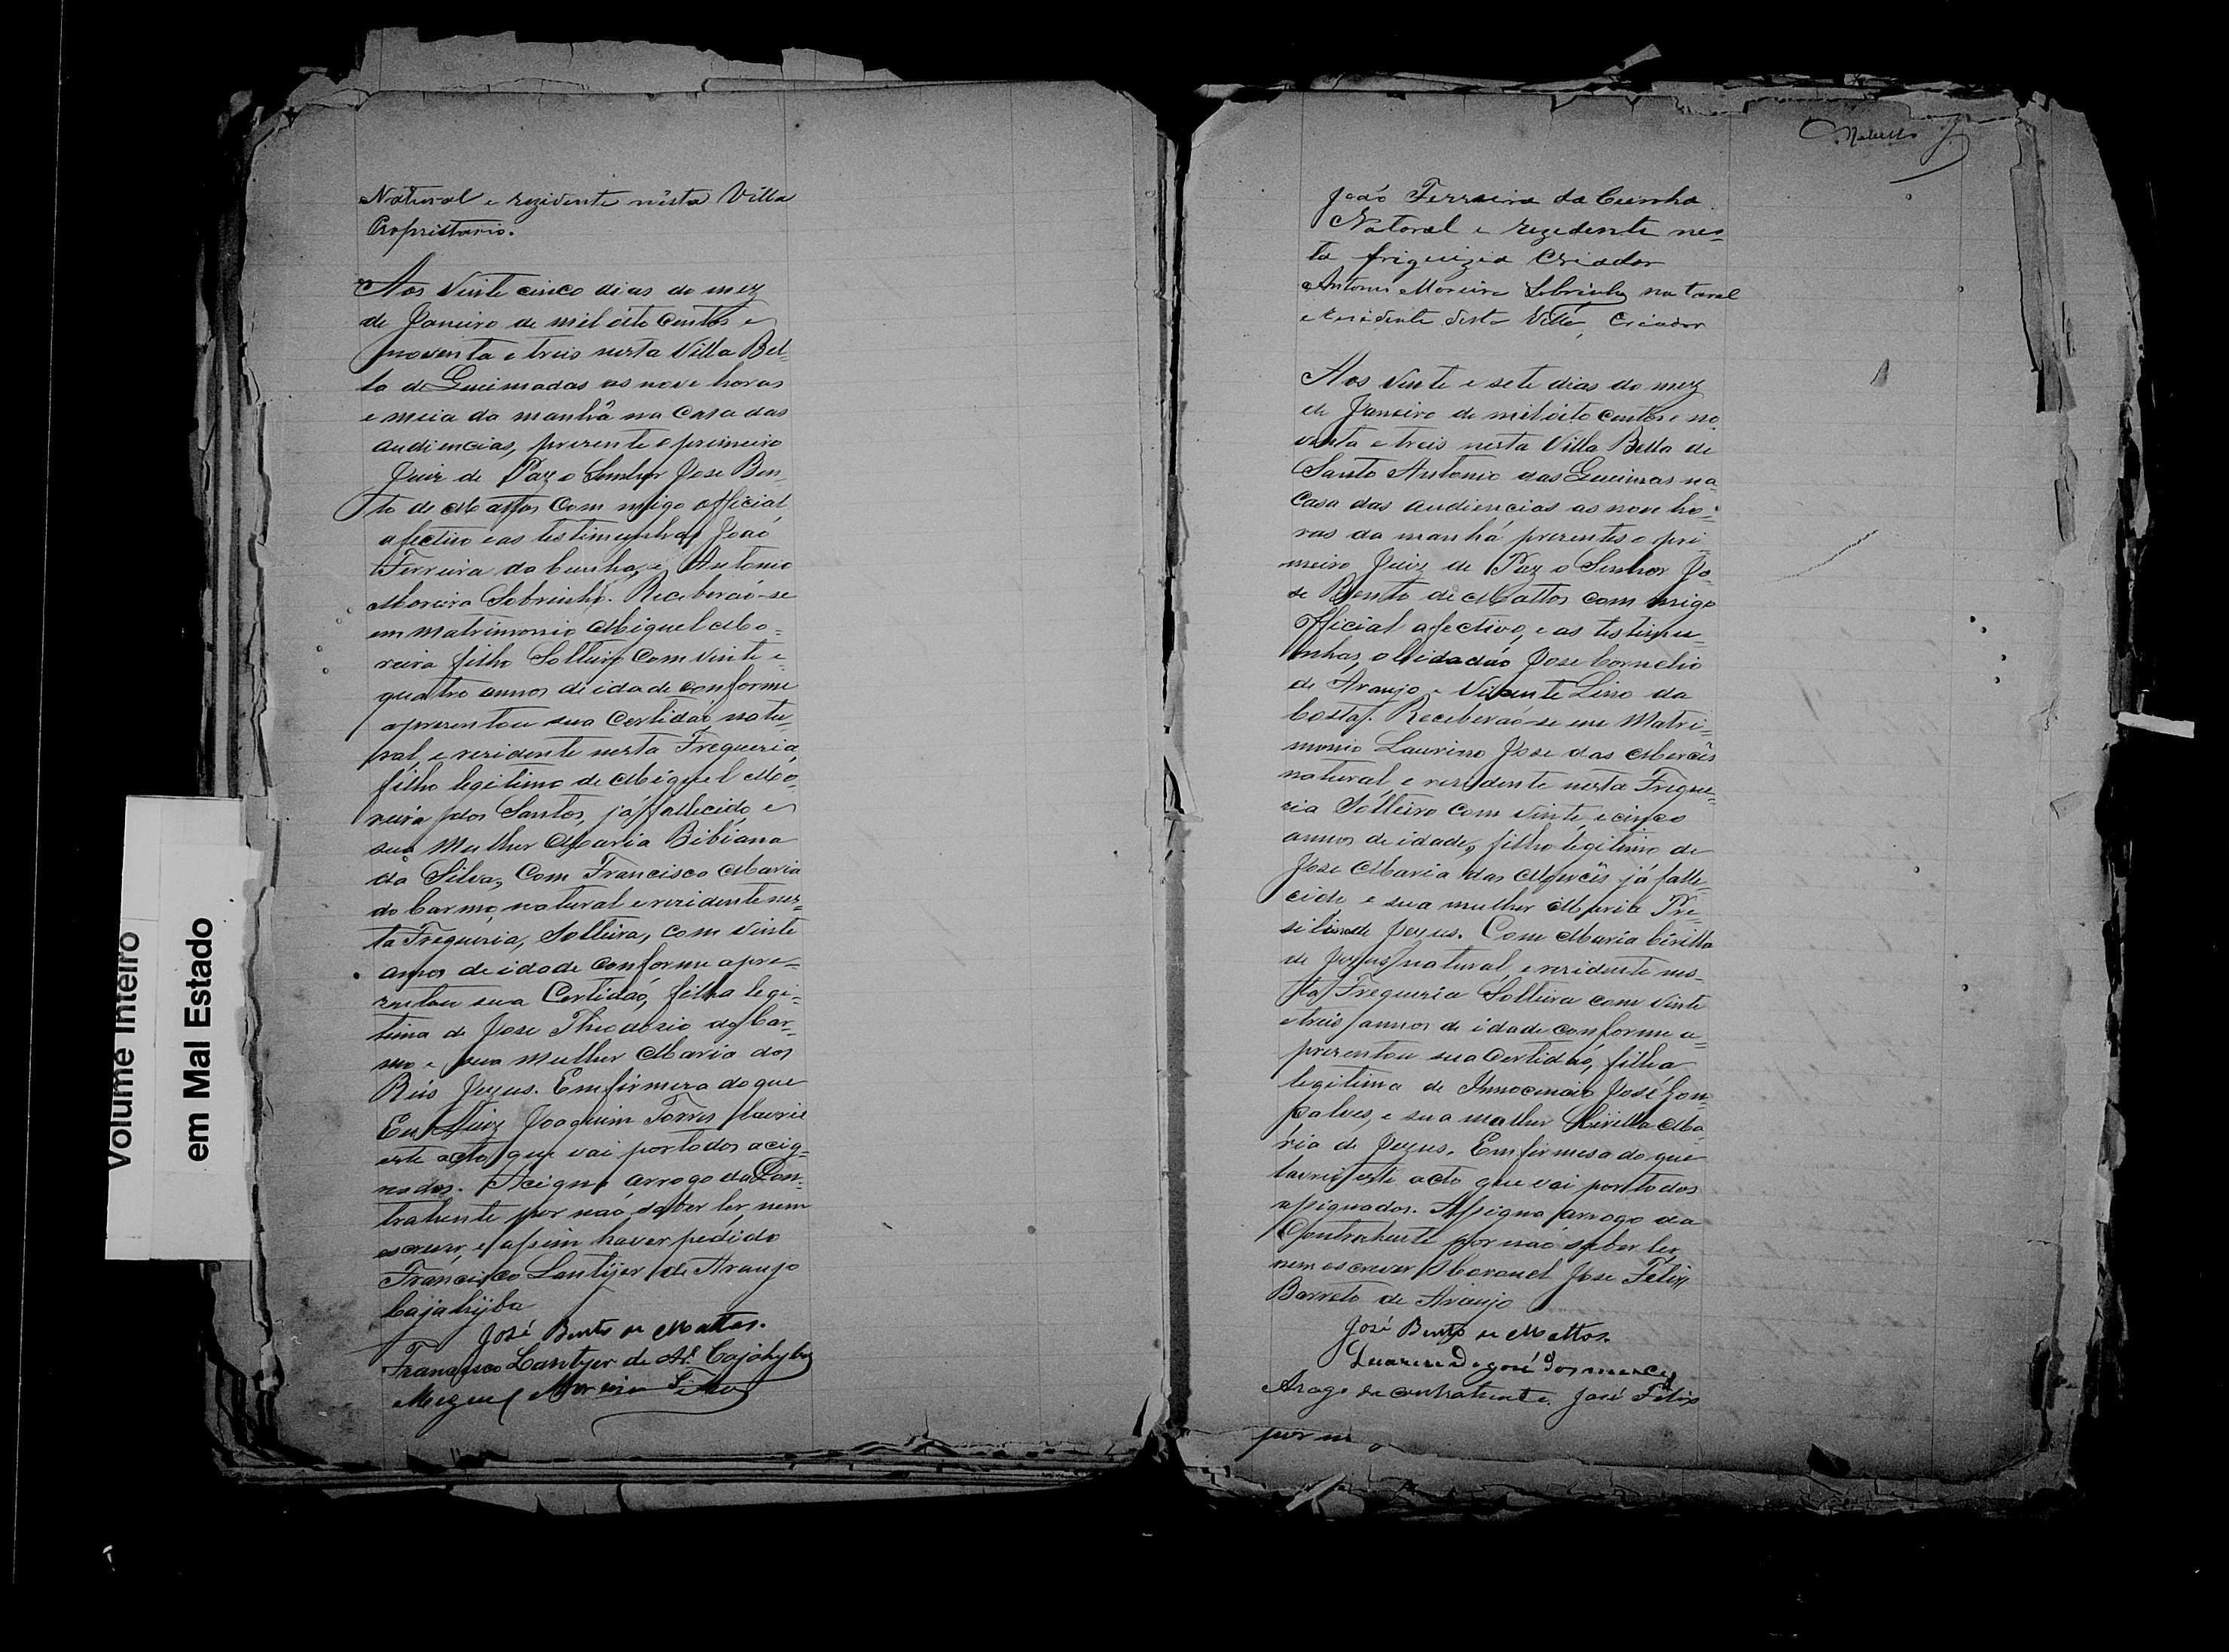 Volume Inteiro
em Mal Estado
Natural e rezidente nésta Villa
Propriettario.
Aos Vinte cinco dias do mez
de Janeiro de mil oito centos e
noventa e treis nesta Villa Bel-
la de Queimadas as nove horas
e meia da manhã na Casa das
audiencias, prezente o primeiro
Juiz de Paz o Senhor Jose Ben-
to de Mattos Com migo official
afectivo e as testimunhas João
Ferreira da Cunha, e Antonio
Moreira Sobrinho. Receberão-se
em Matrimonio Miguel Mo-
reira filho Solteiro Com vinte e
quatro annos de idade conforme
aprezentou sua Certidão natu-
ral, e rezidente nesta Freguezia
filho legitimo de Miguel Mo-
reira dos Santos, já fallecido, e
sua Mulher Maria Bibiana
da Silva, Com Francisca Maria
do Carmo, natural e rezidente nes-
ta Freguezia, Solteira, com vinte
annos de idade Conforme apre-
zentou sua Certidão, filha legi-
tima de Jose Theodosio do Car-
mo e sua Mulher Maria dos
Reis Jezus. Em firmeza do que
Eu Luiz Joaquim Torres lavrei
este acto que vai por todos acig-
nados. Acigna arrogo da Con-
trahente por não saber ler, nem
escrever, e assim haver pedido
Francisco Lantijer de Araujo
Cajahyba
José Bento de Mattos.
Francisco Lantyer de Ar.º Cajahyba
Miguel Moreira Filho
João Ferreira da Cunha
Natoral e rezedente nes-
ta friguizia Criador
Antonio Moreira Sobrinho natoral
e residente desta Villa, Criador
Aos Vinte e sete dias do mez
de Janeiro de mil oito centos e no
venta e treis nesta Villa Bella de
Santo Antonio das Queimas na
Casa das audiencias as nove ho-
ras da manhá prezentes o pri-
meiro Juiz de Paz o Senhor Jo-
se Bento de Mattos com migo
Official afectivo, e as testimu-
nhas, o Cidadão Jose Cornelio
de Araujo e Vicente Lino da
Costa. Receberão-se em Matri-
monio Laurino Jose das Mercês
natural, e rezidente nesta Fregue-
zia Solteiro Com vinte, e cinco
annos de idade, filho legitimo de
Jose Maria das Mercês já falle-
cido e sua mulher Maria Pre-
silina de Jezus. Com Maria Cirilla
de Jezus natural, e rezidente nes-
ta Freguezia Solteira com vinte
e treis annos de idade conforme a-
prezentou sua Certidão, filha
legitima de Innocencio José Gon-
çalves, e sua mulher Cirilla Ma-
ria de Jezus. Em firmesa do que
lavrei este acto que vai por todos
assignados. Assigna arrogo da
Contrahente por não saber ler,
nem escrever o Coronel Jose Felix
Barreto de Araujo
José Bento de Mattos.
Arogo da contrahente. José Felix